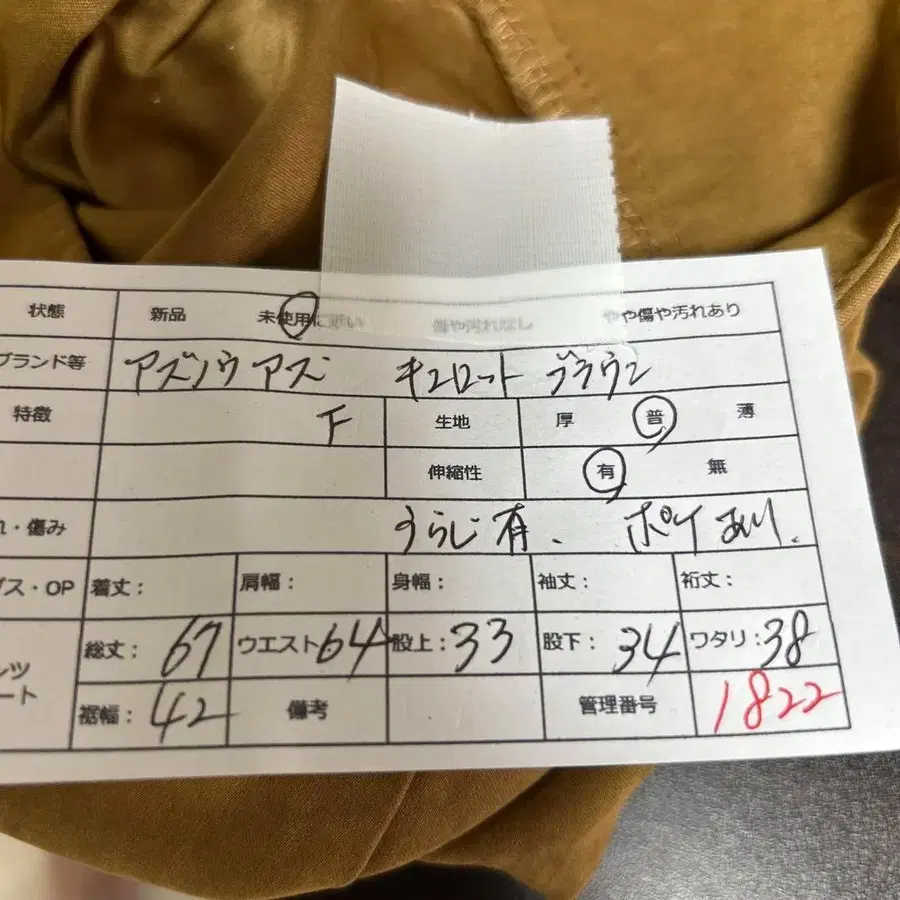 状態 新品 未使用に近い 傷や汚れなし やや傷や汚れあり
ブランド等 アズノウアズ キュロット ブラウン
特徴 F 生地 厚 普 薄
伸縮性 有 無
れ・傷み うらじ有、 ポケあり、
プス・OP 着丈： 肩幅： 身幅： 袖丈： 裄丈：
ンツ 総丈：67 ウエスト64 股上：33 股下：34 ワタリ：38
ート 裾幅：42 備考 管理番号 1822